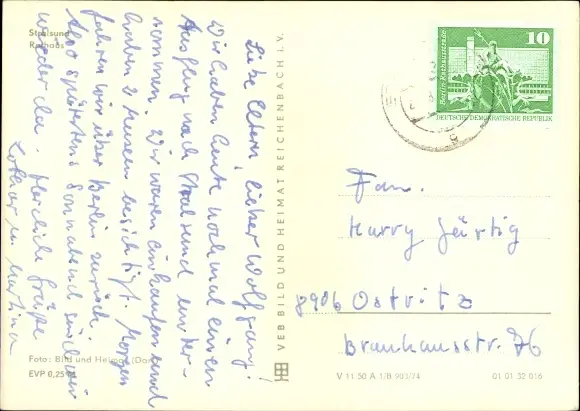 Stralsund
Rathaus
Liebe Eltern, lieber Wolfgang!
Wir haben heute nochmal einen
Ausflug nach Stralsund unter-
nommen. Wir waren einkaufen und
haben 2 Museen besichtigt. Morgen
fahren wir über Berlin zurück.
Also spätestens Sonnabend sind wir
wieder da. Herzliche Grüße
Lothar u. Martina
Foto: Bild und Heimat
EVP 0,25 M
VEB BILD UND HEIMAT REICHENBACH i. V.
10
Berlin, Rathausstraße
DEUTSCHE DEMOKRATISCHE REPUBLIK
Fam.
Harry Gärtig
8906 Ostritz
Brauhausstr. 76
V 11 50 A 1/B 903/74
01 01 32 016